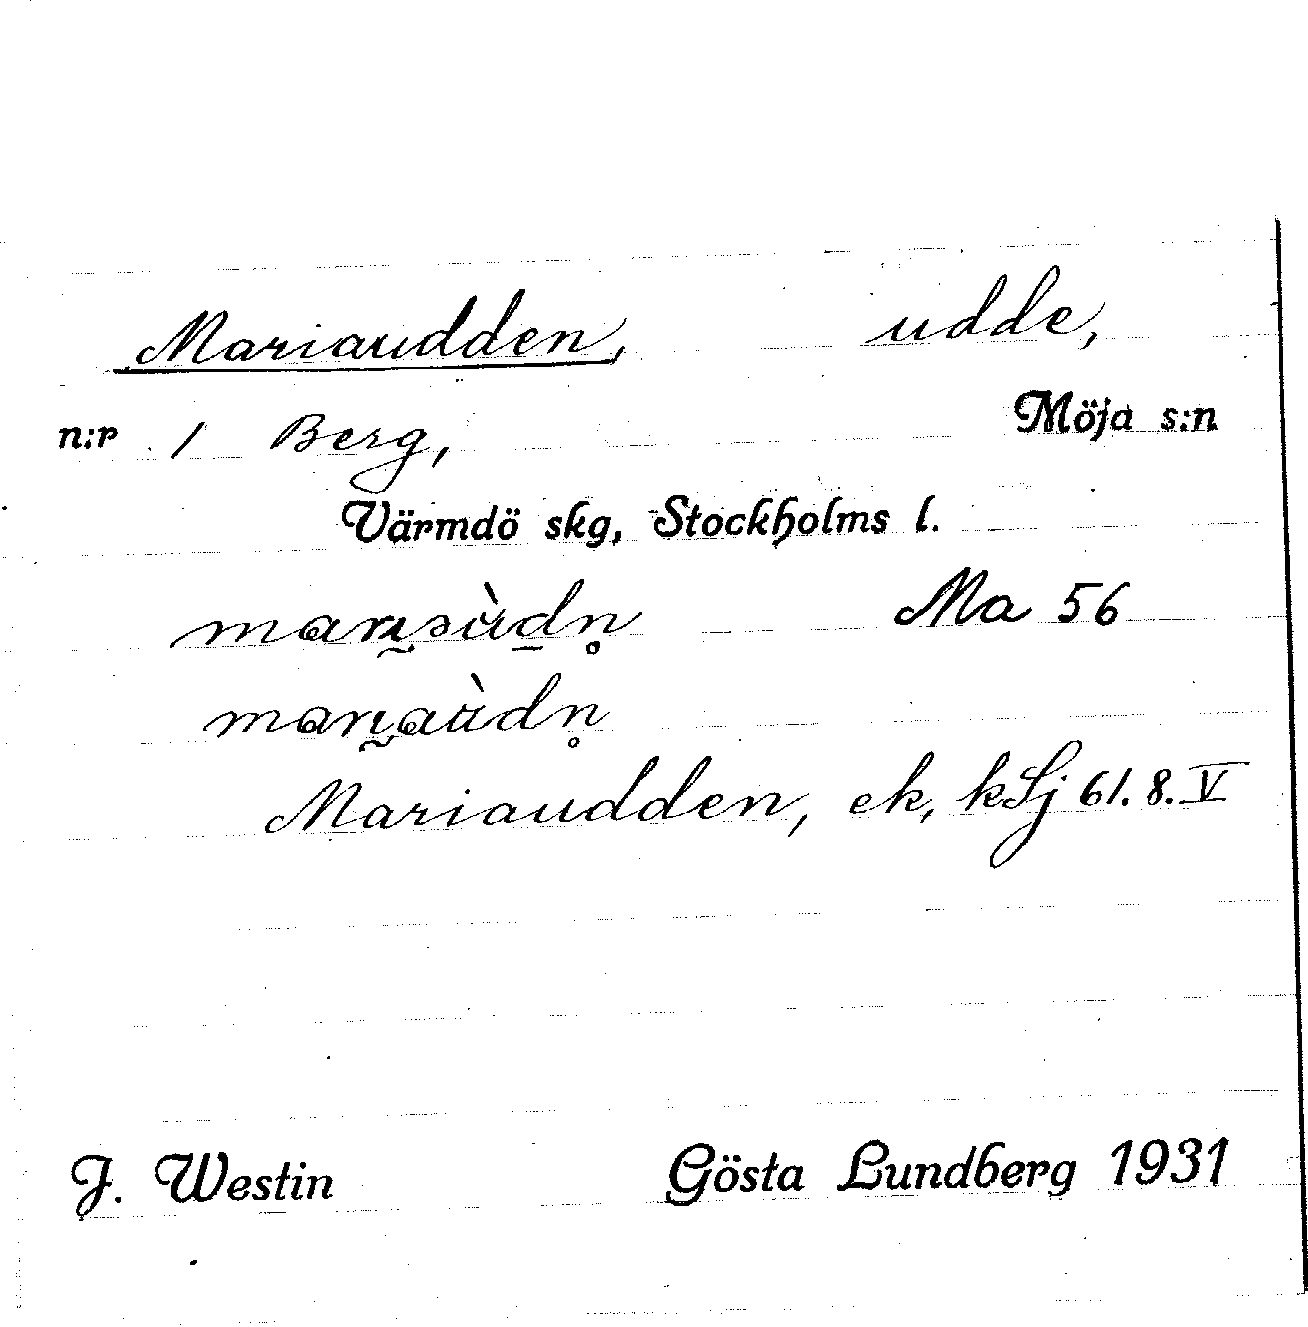 Mariaudden, udde,
n:r 1 Berg, Möja s:n
Värmdö skg, Stockholms l.
marı̰əùdn̥ Ma 56
marı̰aùdn̥
Mariaudden, ek, kSj 61. 8. V
J. Westin Gösta Lundberg 1931